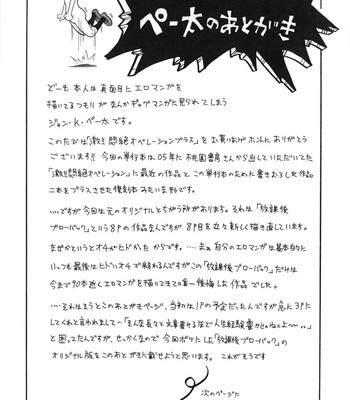 ペー太のあとがき
どーも 本人は真面目にエロマンガを
描いてるつもりが なんかギャグマンガに見られてしまう
ジョン・K・ペー太です。
このたびは「激!! 悶絶オペレーションプラス」をお買いあげホントにありがとう
ございます!! 今回の単行本は05年に桃園書房さんから出していただいてた
「激!! 悶絶オペレーション」に最近の作品と この単行本のために書きおろした作品
二本をプラスさせた復刻本みたいな形です。
...ですが今回は元のオリジナルとちがう所があります。それは「放課後
ブローバック」という8Pの作品なんですが 8P目を立々新しく描き直しています。
なぜかというとオチがヒドかった からです。...まぁ 自分のエロマンガは基本的に
いっつも最後はヒドいオチで終わるんですがこの「放課後ブローバック」だけは
今まで90本近くエロマンガを描いてきて口惜一後悔した作品でした。
...それはそうとこのあとがきページ、当初は1Pの予定だったんですが急に3Pに
してくれと言われまして〜「そんな長々と文章書けるほど人生経験豊かじゃねぇよ〜...」
と困ってたんですが、せっかくなので 今回ボツにした「放課後ブローバック」の
オリジナル版をこのあとがきに載せようと思います。 これがそうです
次のページに